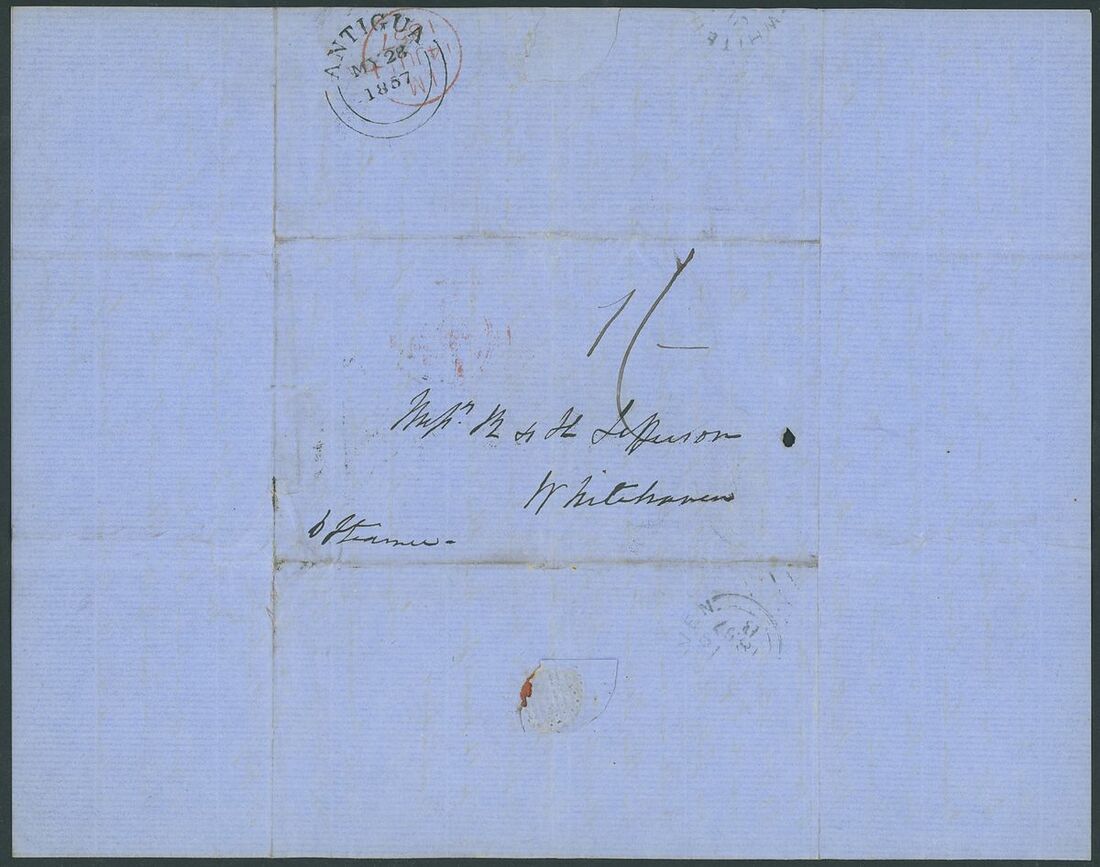 ANTIGUA
MY 28
1857
1/-
Messrs. R & H Jefferson
Whitehaven
p Steamer -